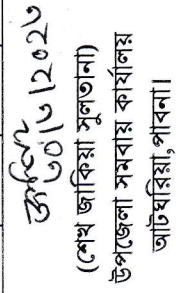 ৩০।৬।২০২৩
(শেখ জাকিয়া সুলতানা)
উপজেলা সমবায় কার্যালয়
আটঘরিয়া, পাবনা।